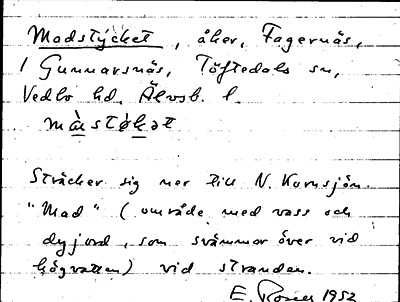 Madstycket, åker, Fagernäs,
1 Gunnarsnäs, Töftedals sn,
Vedbo hd. Älvsb. l.
Sträcker sig ner till N. Kornsjön.
"Mad" (område med vass och
dyjord, som svämmar över vid
högvatten) vid stranden.
E. Rosén 1952